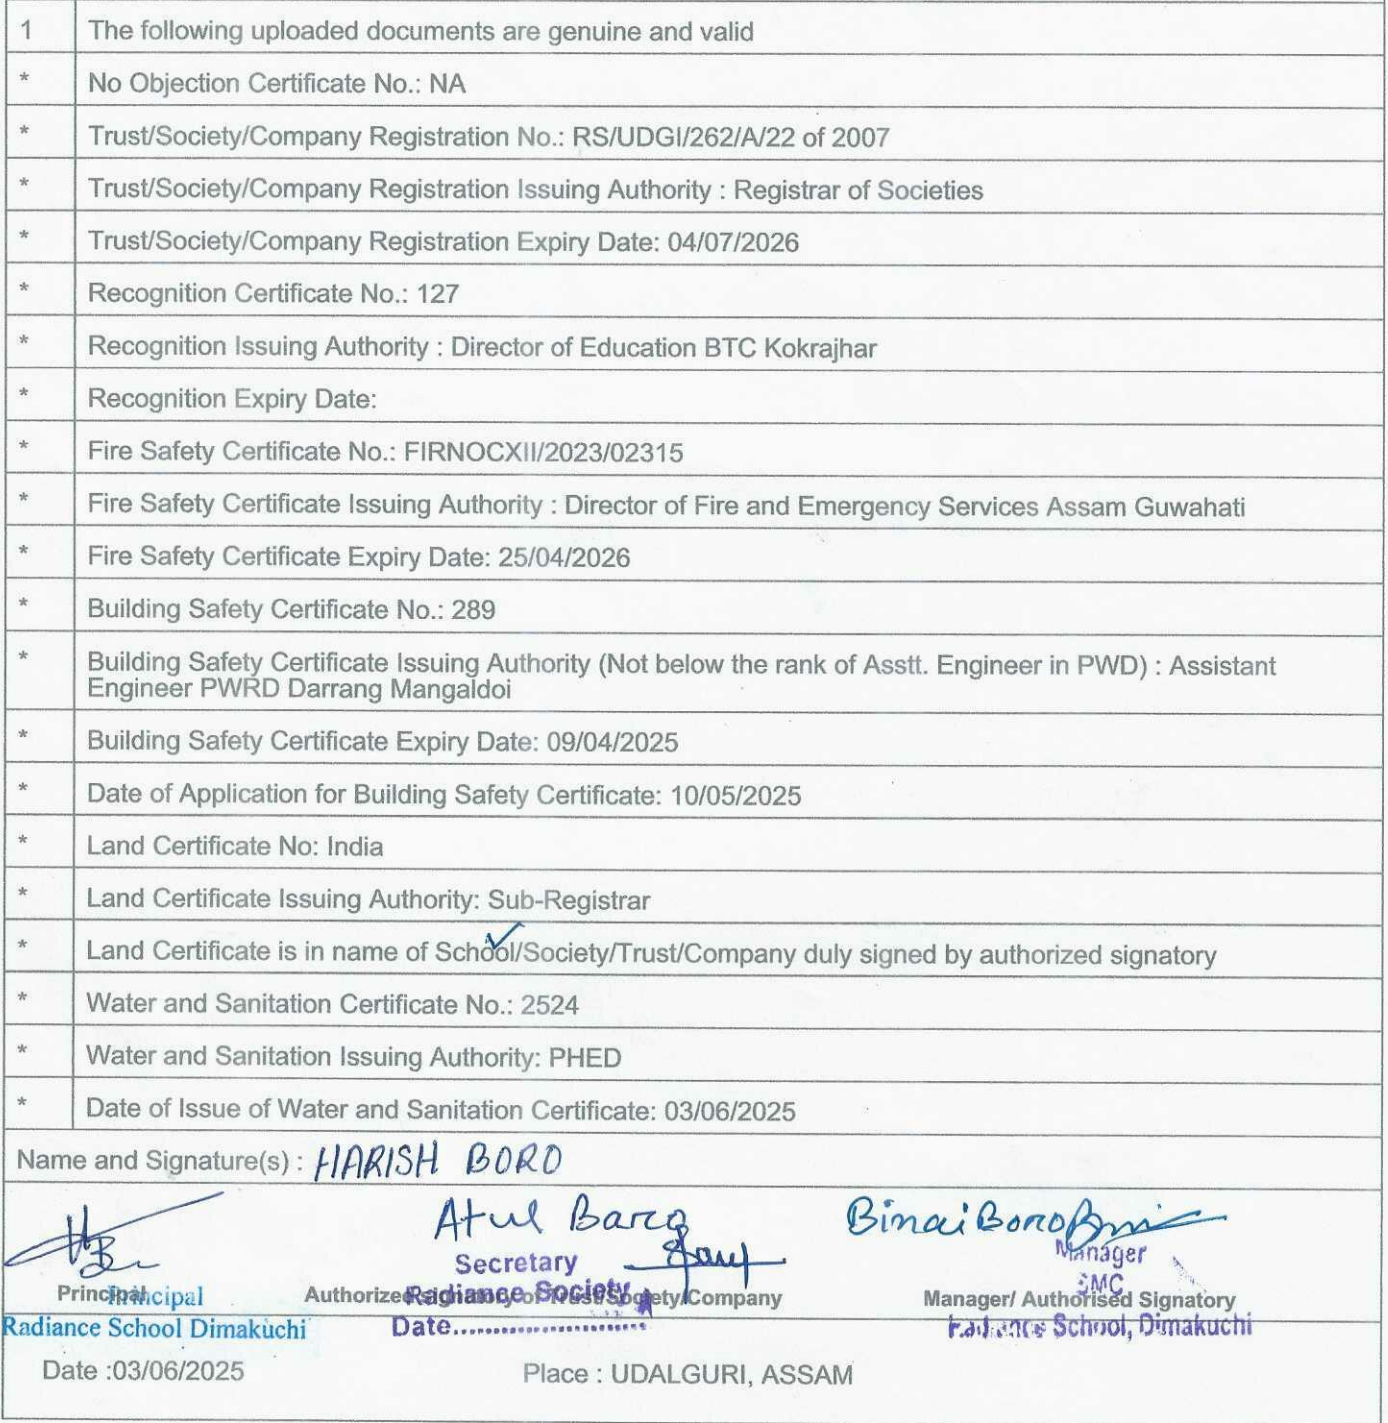 1 The following uploaded documents are genuine and valid
* No Objection Certificate No.: NA
* Trust/Society/Company Registration No.: RS/UDGI/262/A/22 of 2007
* Trust/Society/Company Registration Issuing Authority : Registrar of Societies
* Trust/Society/Company Registration Expiry Date: 04/07/2026
* Recognition Certificate No.: 127
* Recognition Issuing Authority : Director of Education BTC Kokrajhar
* Recognition Expiry Date:
* Fire Safety Certificate No.: FIRNOCXII/2023/02315
* Fire Safety Certificate Issuing Authority : Director of Fire and Emergency Services Assam Guwahati
* Fire Safety Certificate Expiry Date: 25/04/2026
* Building Safety Certificate No.: 289
* Building Safety Certificate Issuing Authority (Not below the rank of Asstt. Engineer in PWD) : Assistant
Engineer PWRD Darrang Mangaldoi
* Building Safety Certificate Expiry Date: 09/04/2025
* Date of Application for Building Safety Certificate: 10/05/2025
* Land Certificate No: India
* Land Certificate Issuing Authority: Sub-Registrar
* Land Certificate is in name of School/Society/Trust/Company duly signed by authorized signatory
* Water and Sanitation Certificate No.: 2524
* Water and Sanitation Issuing Authority: PHED
* Date of Issue of Water and Sanitation Certificate: 03/06/2025
Name and Signature(s) : HARISH BORO
Atul Baro Binai Boro
Secretary Manager
SMC
Principal Authorized signatory of Trust/Society/Company Manager/ Authorised Signatory
Principal Radiance Society
Radiance School Dimakuchi Date........................... Radiance School, Dimakuchi
Date :03/06/2025 Place : UDALGURI, ASSAM